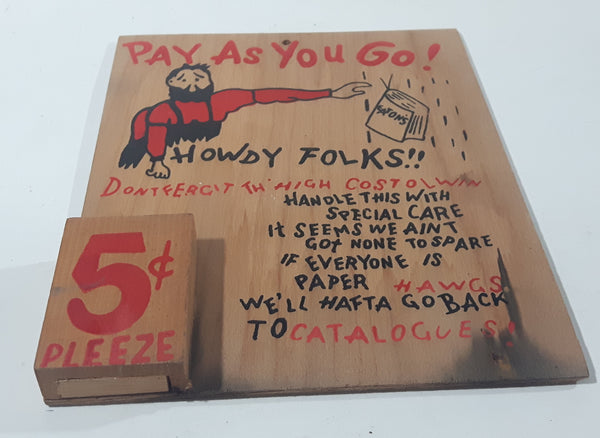 PAY AS YOU GO!
EATONS
HOWDY FOLKS!!
DONTFERGIT TH' HIGH COST O LIVIN
HANDLE THIS WITH
SPECIAL CARE
IT SEEMS WE AINT
GOT NONE TO SPARE
IF EVERYONE IS
PAPER HAWGS
WE'LL HAFTA GO BACK
TO CATALOGUES!
5¢
PLEEZE